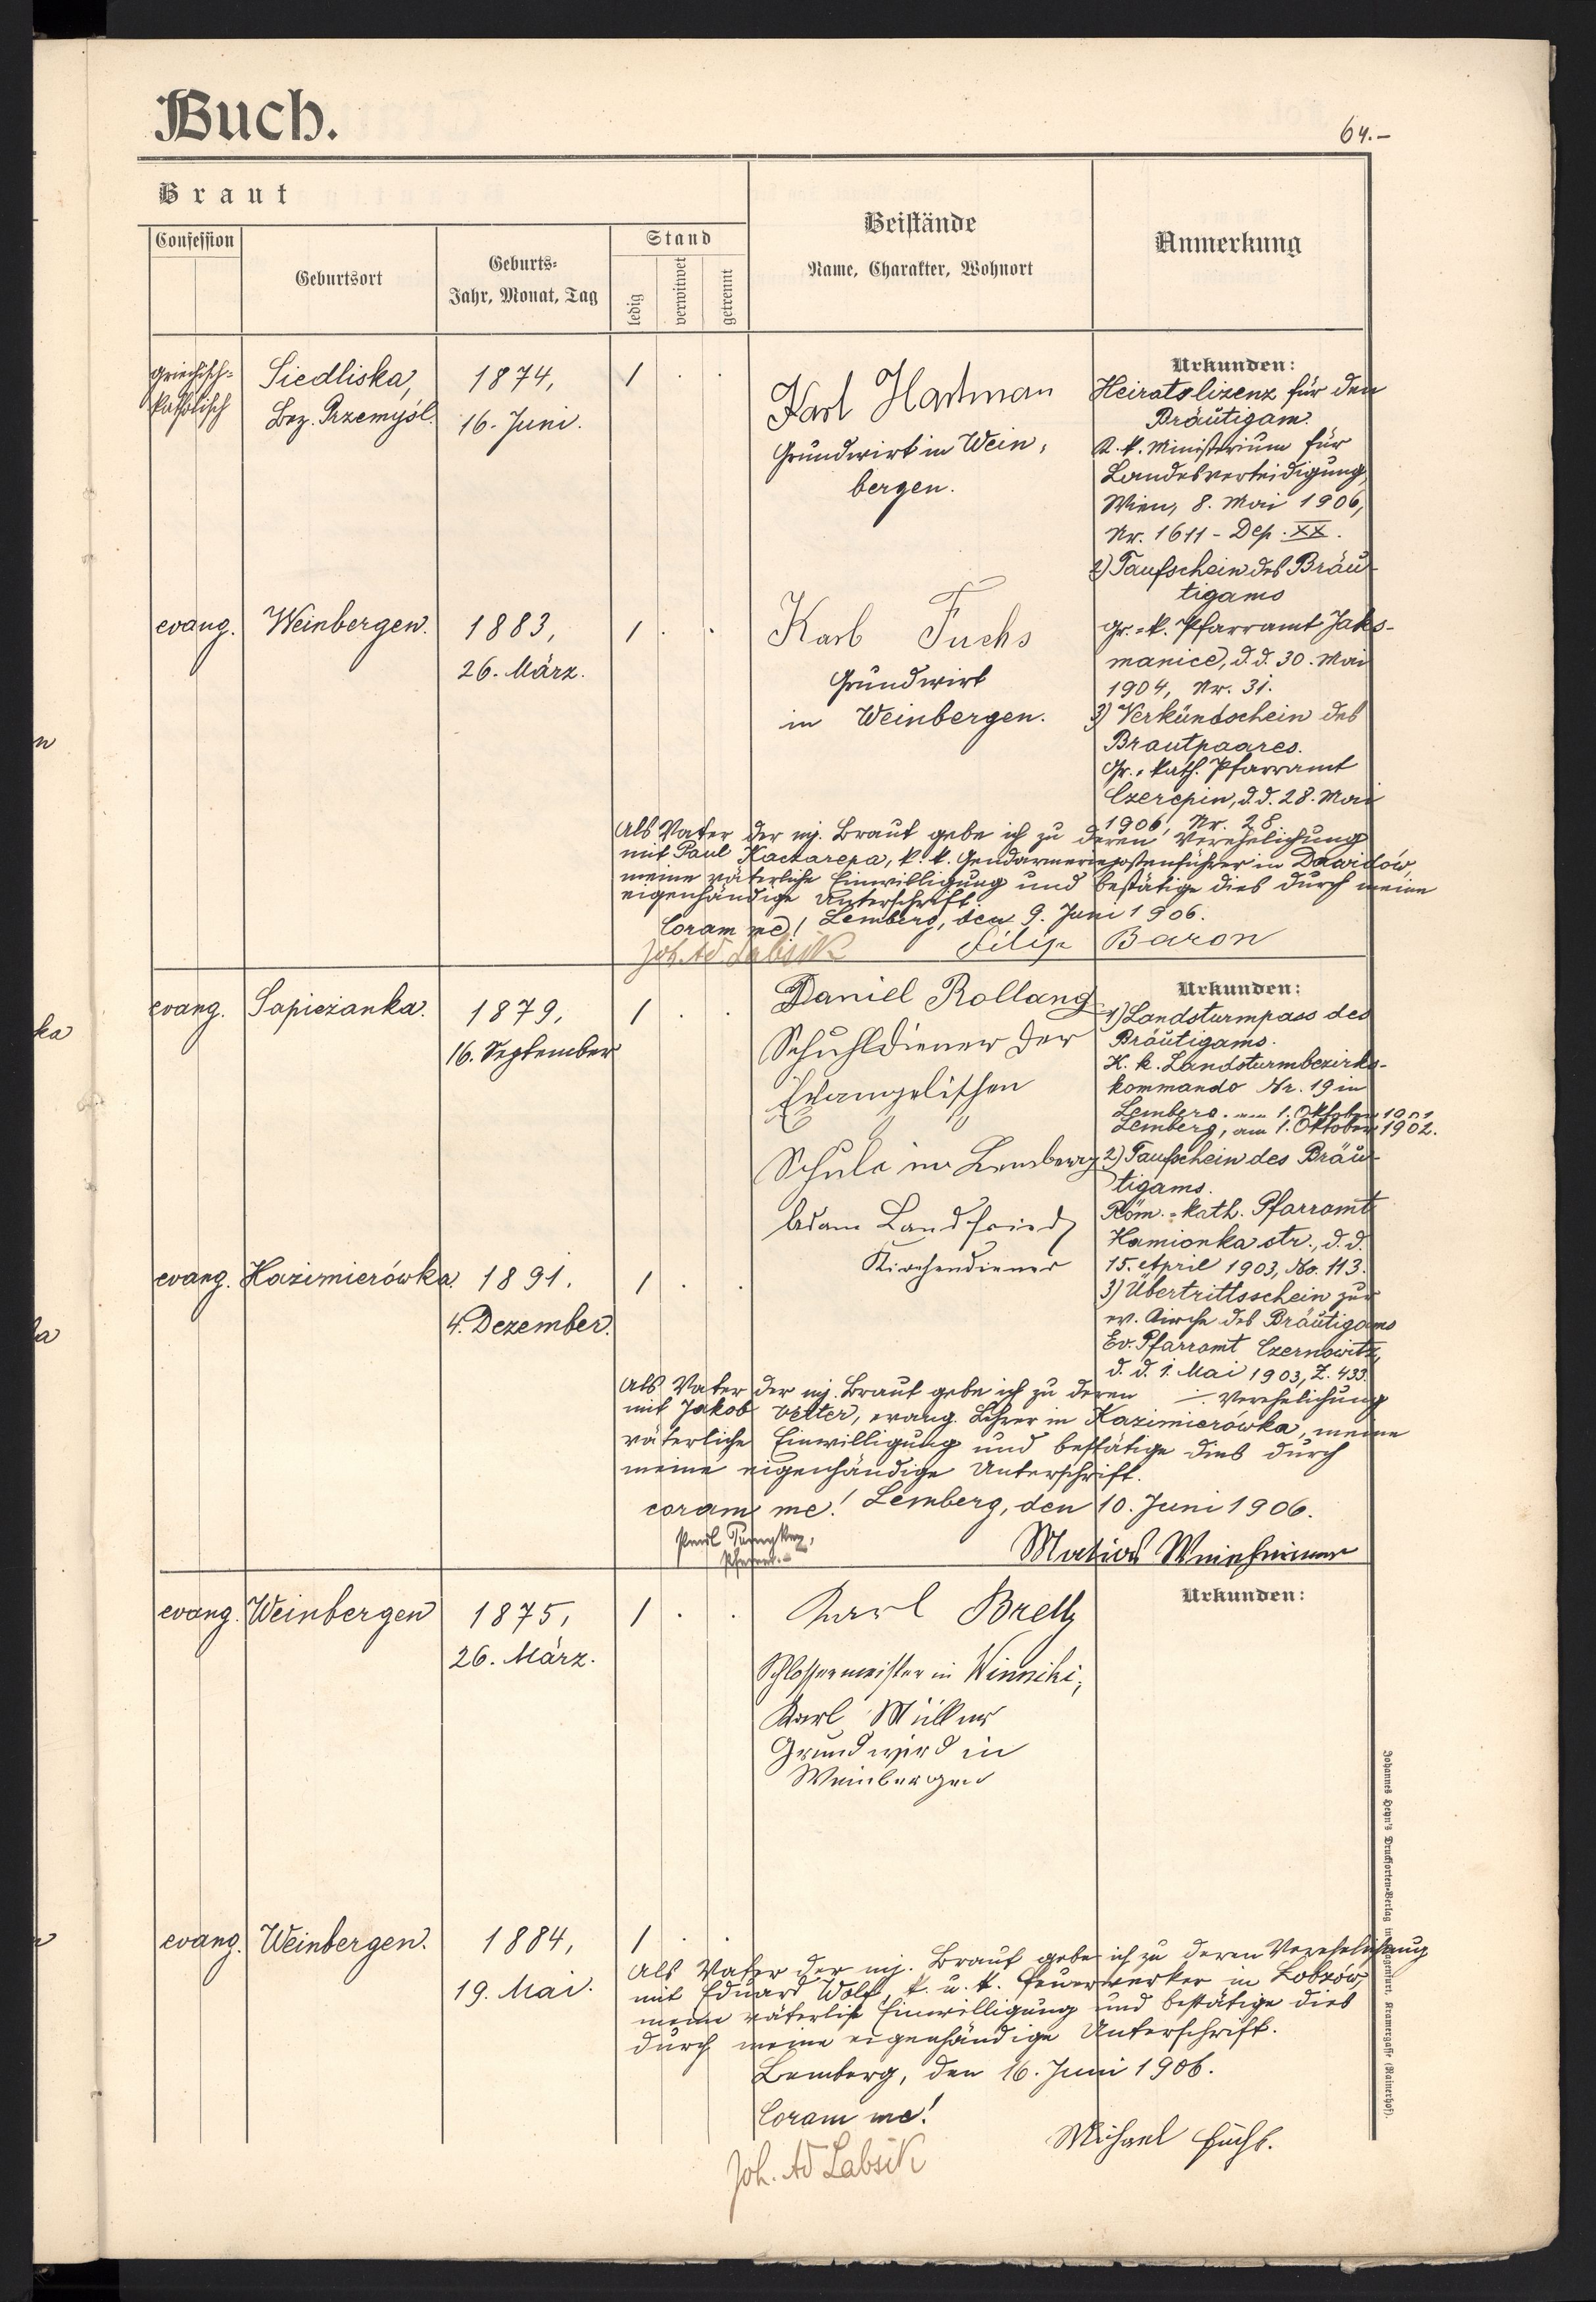 Buch.
64.-
Braut
Confession
Geburtsort
Geburts-
Jahr, Monat, Tag
Stand
ledig
verwitwet
getrennt
Beistände
Name, Charakter, Wohnort
Anmerkung
griechisch-
katholisch
Siedliska,
Bez. Przemyśl.
1874,
16. Juni.
1 . .
Karl Hartman
Grundwirt in Wein-
bergen.
Urkunden:
Heiratslizenz für den
Bräutigam.
K. k. Ministerium für
Landesverteidigung,
Wien, 8. Mai 1906,
Nr. 1611 - Dep. XX.
2) Taufschein des Bräu-
tigams
gr.-k. Pfarramt Jaks-
manice, d. d. 30. Mai
1904, Nr. 31.
3) Verkündschein des
Brautpaares.
Gr.-kath. Pfarramt
Czerepin, d. d. 28. Mai
1906, Nr. 28.
evang.
Weinbergen.
1883,
26. März.
1 . .
Karl Fuchs
Grundwirt
in Weinbergen.
Als Vater der mj. Braut gebe ich zu deren Verehelichung
mit Paul Kaczarepa, k. k. Gendarmeriepostenführer in Dawidów,
meine väterliche Einwilligung und bestätige dies durch meine
eigenhändige Unterschrift.
Coram me! Lemberg, den 9. Juni 1906.
Joh. Ad Labsik Filip Baron
evang.
Sapieżanka.
1879,
16. September
1 . .
Daniel Rolland
Schuhldiener der
Evangelischen
Schule in Lemberg
Adam Landfried
Kirchendiener
Urkunden:
1) Landsturmpass des
Bräutigams.
K. k. Landsturmbezirks-
kommando Nr. 19 in
Lemberg, am 1. Oktober 1902.
2) Taufschein des Bräu-
tigams.
Röm.-kath. Pfarramt
Kamionka str., d. d.
15. April 1903, No. 113.
3) Übertrittsschein zur
ev. Kirche des Bräutigams
Ev. Pfarramt Czernowitz,
d. d. 1. Mai 1903, Z. 433.
evang.
Kazimierówka.
1891.
4. Dezember.
1 . .
Als Vater der mj. Braut gebe ich zu deren Verehelichung
mit Jakob Vetter, evang. Lehrer in Kazimierówka, meine
väterliche Einwilligung und bestätige dies durch
meine eigenhändige Unterschrift.
coram me! Lemberg, den 10. Juni 1906.
Matias Weinheimer
evang.
Weinbergen
1875,
26. März.
1 . .
Karl Bretz
Schlossermeister in Winniki,
Karl Müller
Grundwird in
Weinbergen
Urkunden:
evang.
Weinbergen.
1884,
19. Mai.
1 . .
Als Vater der mj. Braut gebe ich zu deren Verehelichung
mit Eduard Wolf, k. u. k. Feuerwerker in Łobzów
meine väterliche Einwilligung und bestätige dies
durch meine eigenhändige Unterschrift.
Lemberg, den 16. Juni 1906.
Coram me!
Joh. Ad Labsik
Michael Fuchs.
Johannes Heyn's Drucksorten-Verlag in Klagenfurt, Kramergasse (Rainerhof).